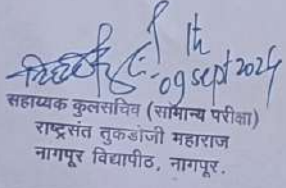 th
09 sept 2024
सहाय्यक कुलसचिव (सामान्य परीक्षा)
राष्ट्रसंत तुकडोजी महाराज
नागपूर विद्यापीठ, नागपूर.